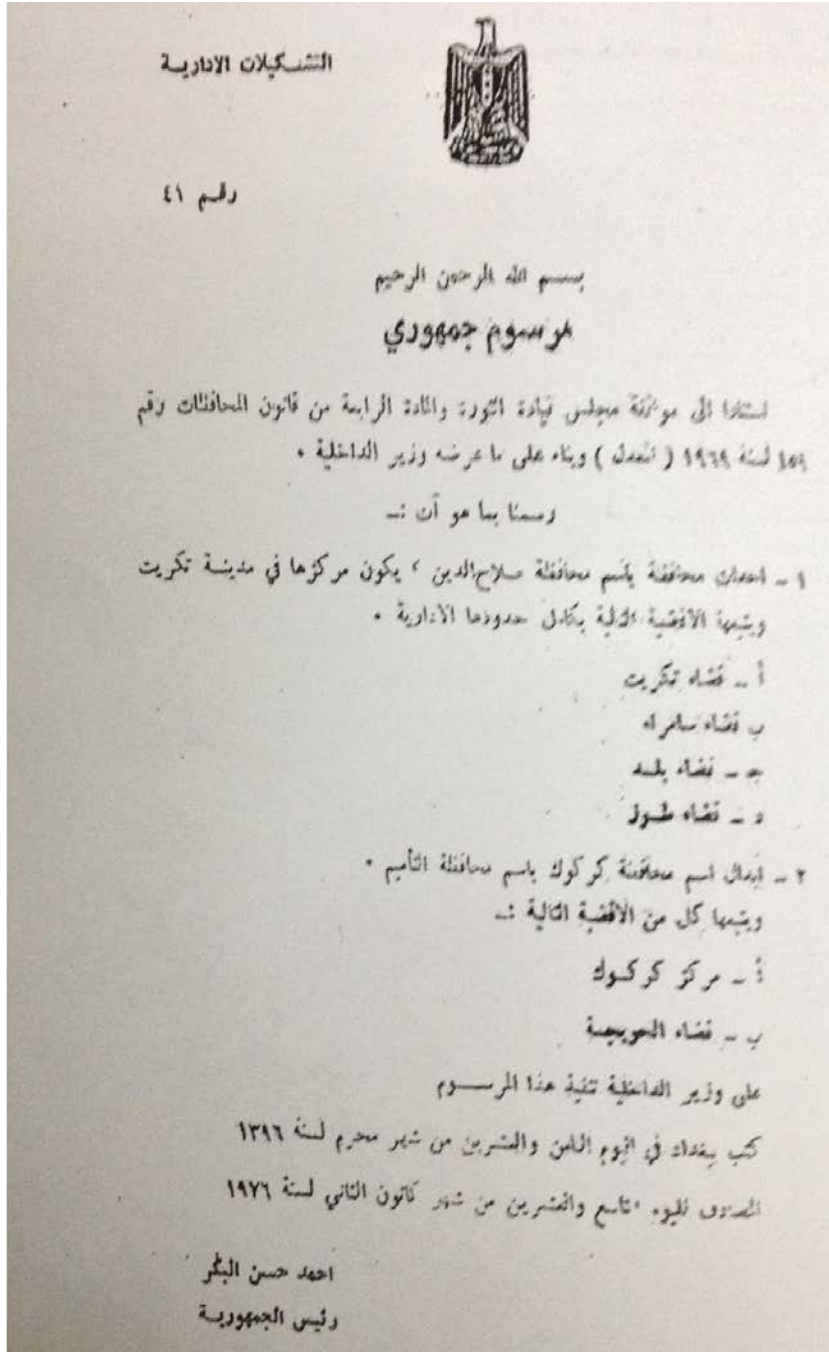 التشكيلات الادارية
رقم ٤١
بسم الله الرحمن الرحيم
مرسوم جمهوري
استنادا الى موافقة مجلس قيادة الثورة والمادة الرابعة من قانون المحافظات رقم
١٥٩ لسنة ١٩٦٩ ( المعدل ) وبناء على ما عرضه وزير الداخلية .
رسمنا بما هو آت :ـ
١ ـ احداث محافظة باسم محافظة صلاح الدين ، يكون مركزها في مدينة تكريت
ويتبعها الأقضية التالية بكامل حدودها الادارية .
أ ـ قضاء تكريت
ب قضاء سامراء
جـ ـ قضاء بلد
د ـ قضاء طوز
٢ ـ ابدال اسم محافظة كركوك باسم محافظة التأميم .
ويتبعها كل من الأقضية التالية :ـ
أ ـ مركز كركوك
ب ـ قضاء الحويجة
على وزير الداخلية تنفيذ هذا المرسوم
كتب ببغداد في اليوم الثامن والعشرين من شهر محرم لسنة ١٣٩٦
المصادف لليوم التاسع والعشرين من شهر كانون الثاني لسنة ١٩٧٦
احمد حسن البكر
رئيس الجمهورية